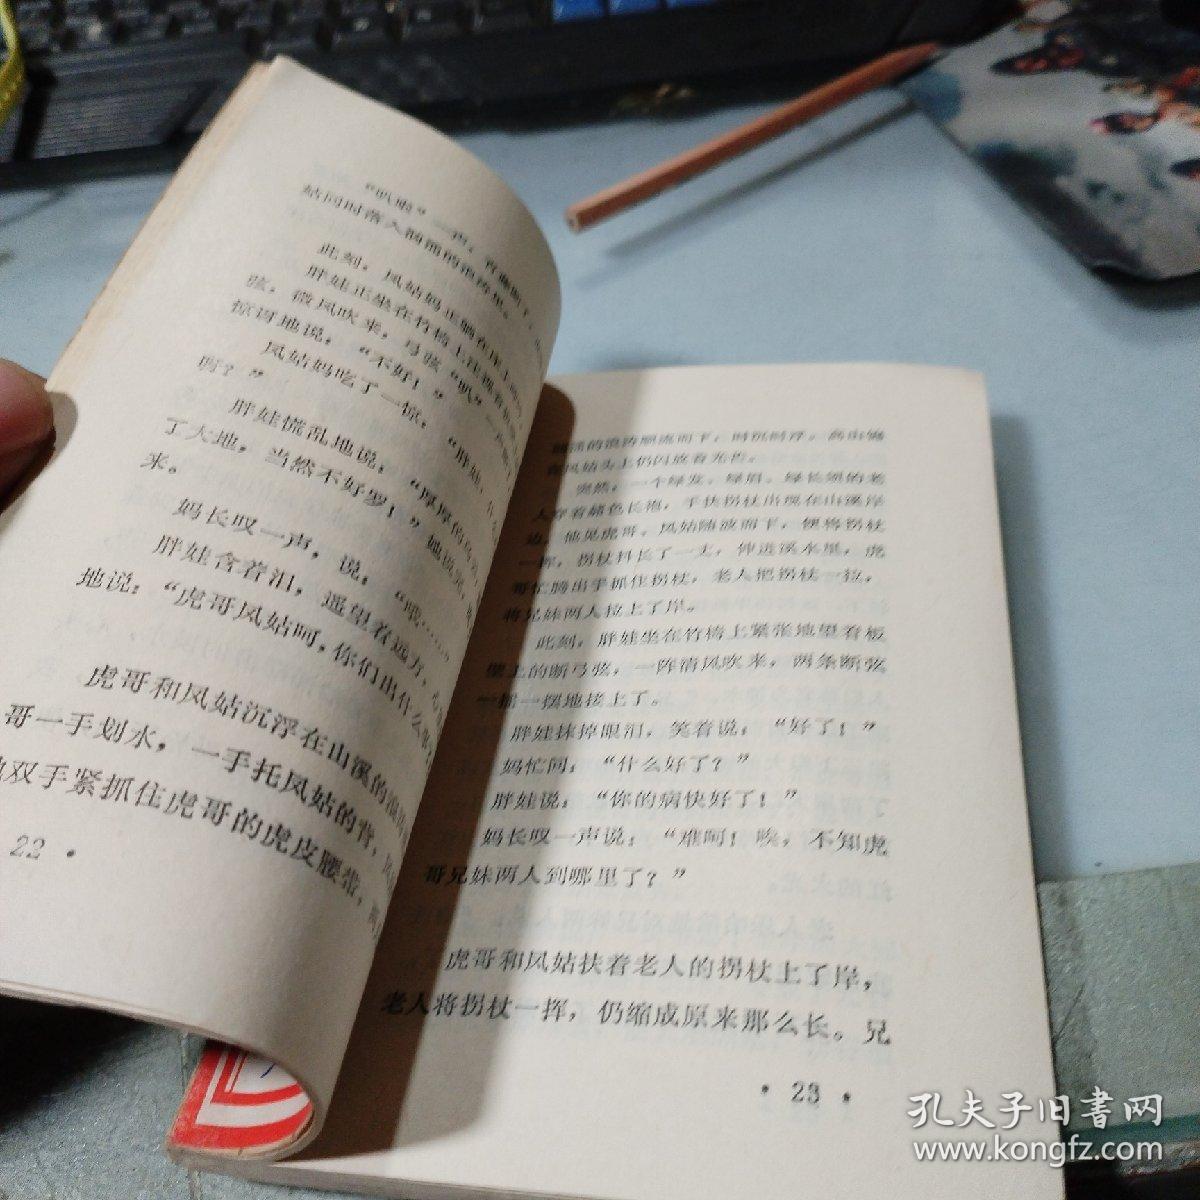 “叭啦”一声，青藤断了，
姑同时落入汹涌的浪涛里。
此刻，凤姑妈正躺在床上
胖娃正坐在竹椅上注视着
弦，微风吹来，弓弦“叭”一声
惊讶地说：“不好！”
凤姑妈吃了一惊：“胖娃，什么
呵？”
胖娃慌乱地说：“厚厚的
了大地，当然不好罗！”她说完，
来。
妈长叹一声，说：“哦……”
胖娃含着泪，遥望着远方，
地说：“虎哥凤姑呵，你们出什么事
虎哥和凤姑沉浮在山溪的
哥一手划水，一手托凤姑的背，
双手紧抓住虎哥的虎皮腰带，
22 •
的浪涛顺流而下，时沉时浮。
在凤姑头上仍闪放着光芒。
突然，一个绿发、绿眉、绿长须的老
人穿着赭色长袍，手扶拐杖出现在山溪岸
边。他见虎哥、凤姑随波而下，便将拐杖
一挥，拐杖抖长了一丈，伸进溪水里，虎
哥忙腾出手抓住拐杖，老人把拐杖一拉，
将兄妹两人拉上了岸。
此刻，胖娃坐在竹椅上紧张地望着板
壁上的断弓弦，一阵清风吹来，两条断弦
一摇一摆地接上了。
胖娃抹掉眼泪，笑着说：“好了！”
妈忙问：“什么好了？”
胖娃说：“你的病快好了！”
妈长叹一声说：“难呵！唉，不知虎
哥兄妹两人到哪里了？”
虎哥和凤姑扶着老人的拐杖上了岸，
老人将拐杖一挥，仍缩成原来那么长。兄
• 23 •
孔夫子旧书网
www.kongfz.com